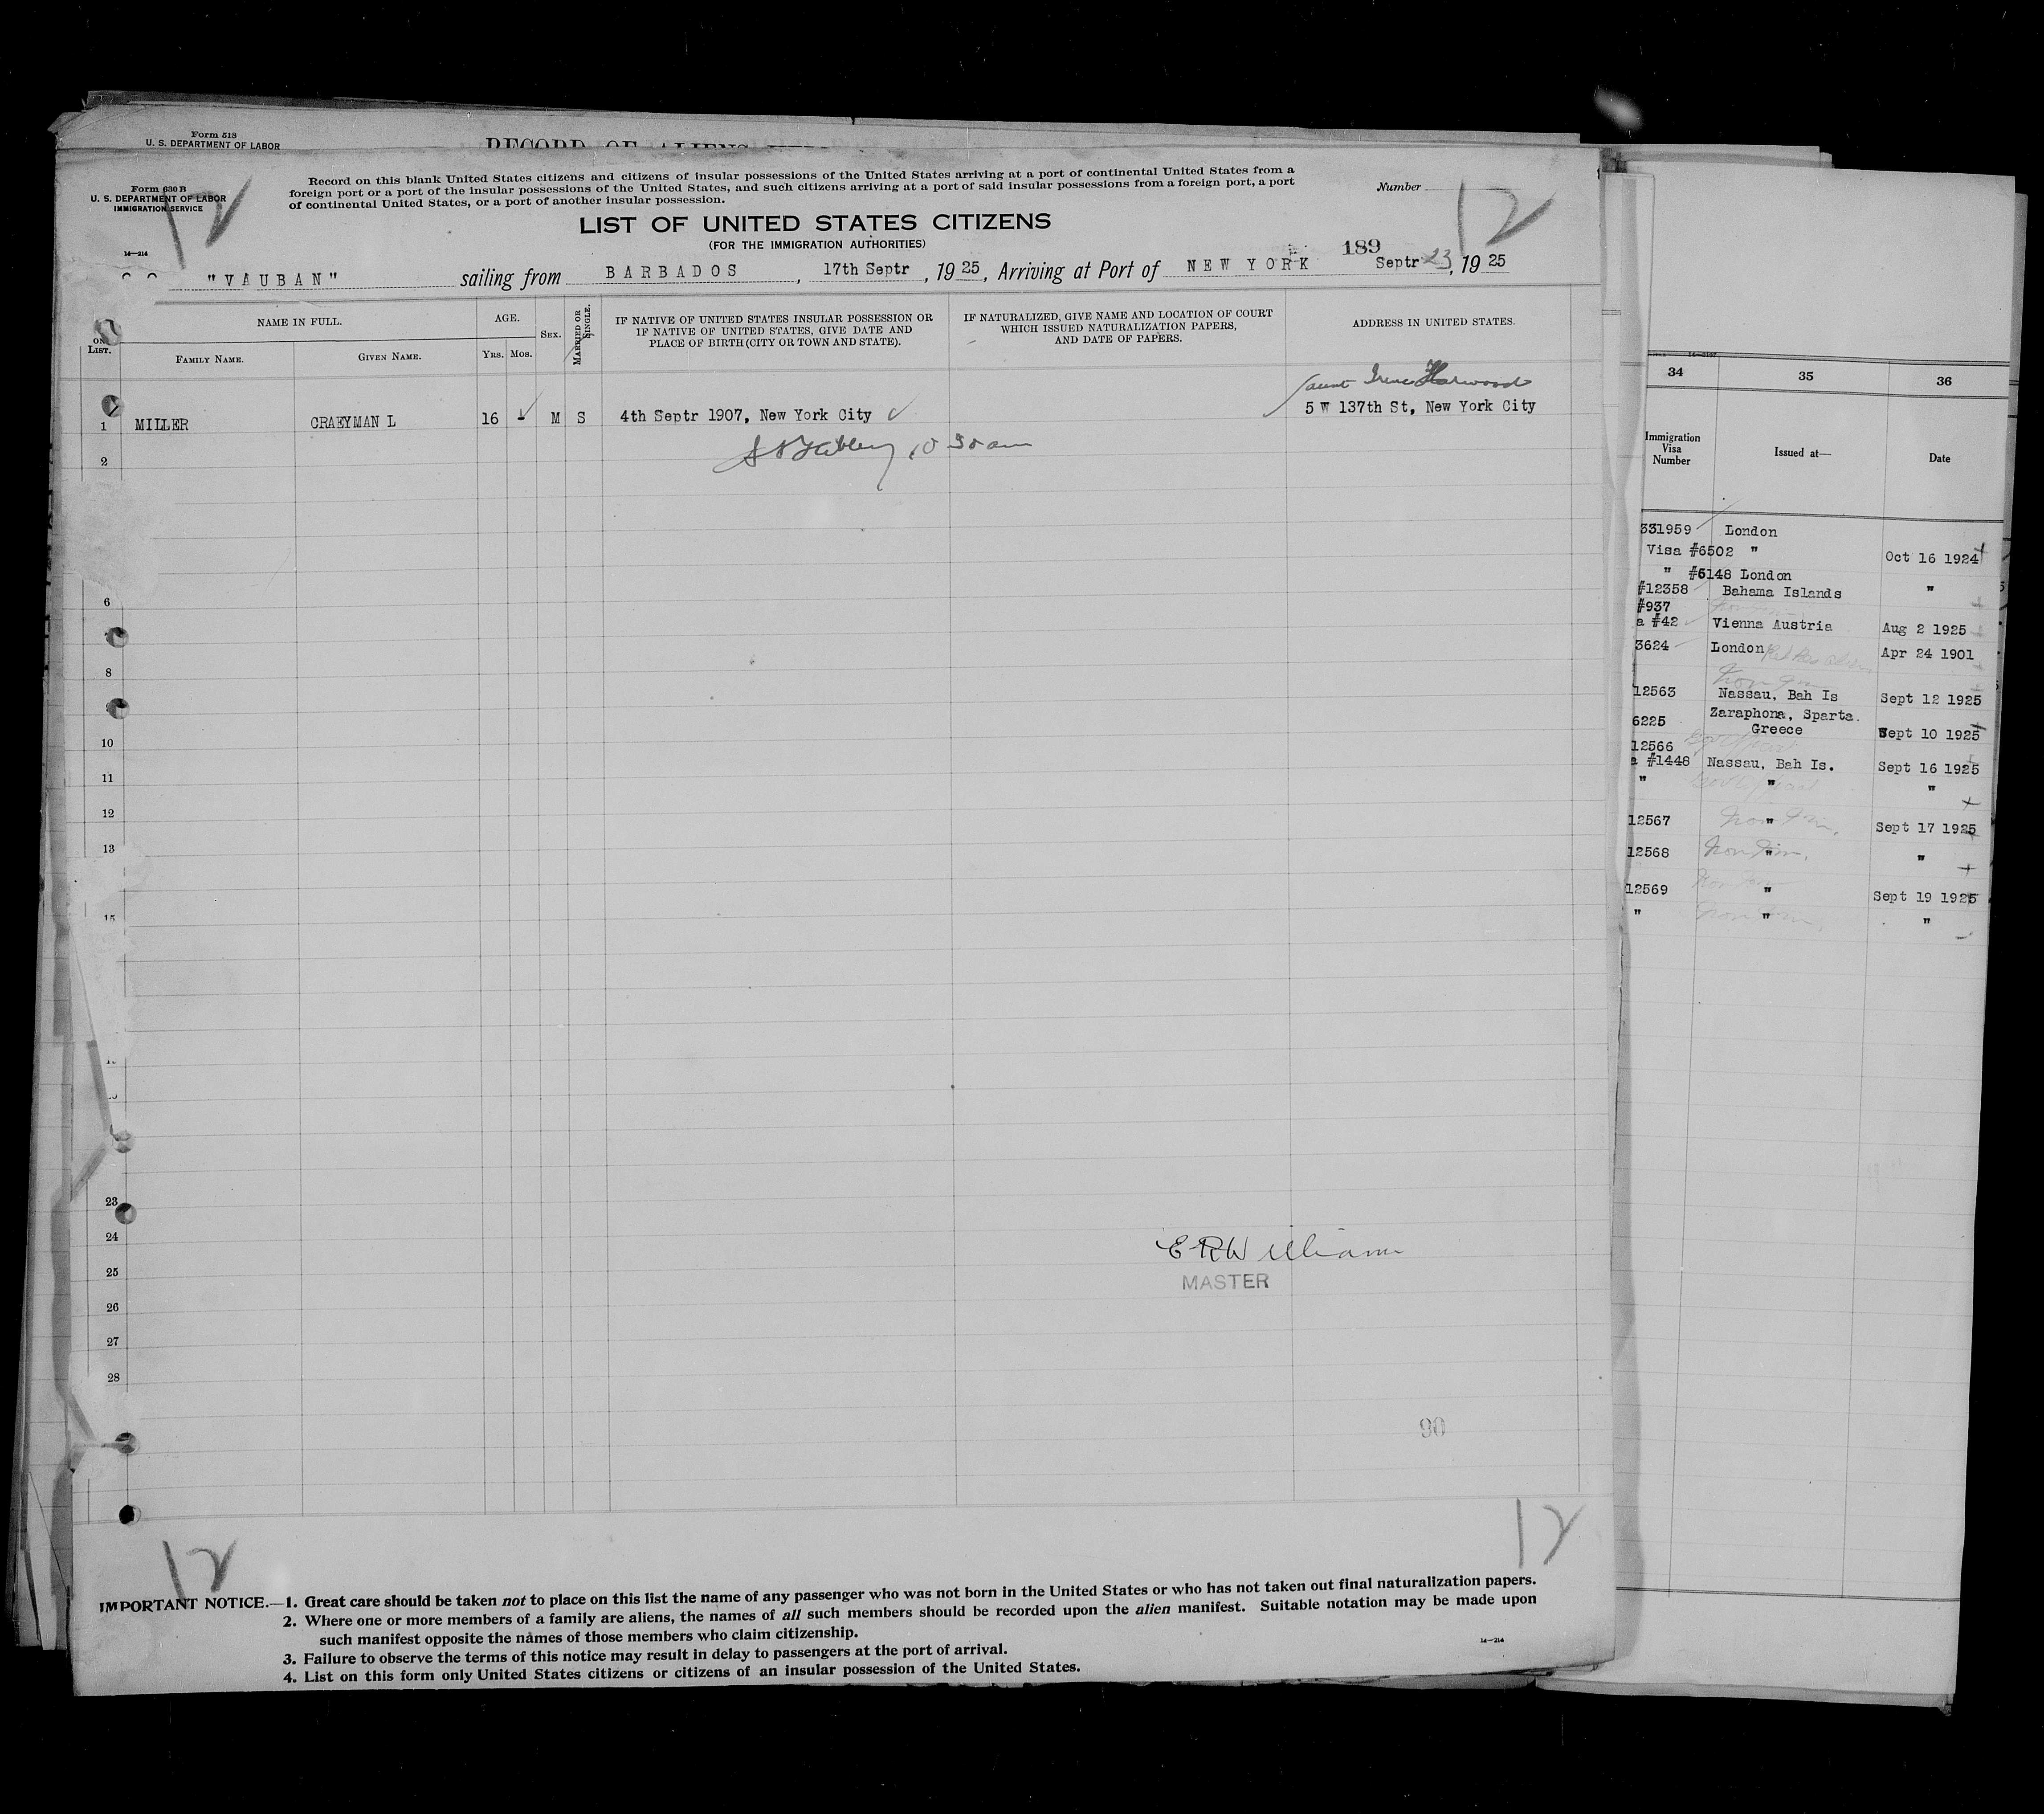 Form 513
U. S. DEPARTMENT OF LABOR
RECORD OF ALIENS
Form 630 B
U. S. DEPARTMENT OF LABOR
IMMIGRATION SERVICE
12
Record on this blank United States citizens and citizens of insular possessions of the United States arriving at a port of continental United States from a
foreign port or a port of the insular possessions of the United States, and such citizens arriving at a port of said insular possessions from a foreign port, a port
of continental United States, or a port of another insular possession.
Number
12
LIST OF UNITED STATES CITIZENS
(FOR THE IMMIGRATION AUTHORITIES)
14—214
189
"VAUBAN" sailing from BARBADOS, 17th Septr, 1925, Arriving at Port of NEW YORK Septr 23, 1925
ON
LIST.
NAME IN FULL.
FAMILY NAME.
GIVEN NAME.
AGE.
YRS.
MOS.
SEX.
MARRIED OR
SINGLE.
IF NATIVE OF UNITED STATES INSULAR POSSESSION OR
IF NATIVE OF UNITED STATES, GIVE DATE AND
PLACE OF BIRTH (CITY OR TOWN AND STATE).
IF NATURALIZED, GIVE NAME AND LOCATION OF COURT
WHICH ISSUED NATURALIZATION PAPERS,
AND DATE OF PAPERS.
ADDRESS IN UNITED STATES.
aunt Irene Harwood
1 MILLER CRAEYMAN L 16 - M S 4th Septr 1907, New York City 5 W 137th St, New York City
10 30 am
2
6
8
10
11
12
13
15
23
24
25
26
27
28
E R Williams
MASTER
90
12
12
IMPORTANT NOTICE.—1. Great care should be taken not to place on this list the name of any passenger who was not born in the United States or who has not taken out final naturalization papers.
2. Where one or more members of a family are aliens, the names of all such members should be recorded upon the alien manifest. Suitable notation may be made upon
such manifest opposite the names of those members who claim citizenship.
3. Failure to observe the terms of this notice may result in delay to passengers at the port of arrival.
4. List on this form only United States citizens or citizens of an insular possession of the United States.
14—214
34 35 36
Immigration
Visa
Number
Issued at—
Date
331959 London
Visa #6502 " Oct 16 1924
" #6148 London
#12358 Bahama Islands "
#937
a #42 Vienna Austria Aug 2 1925
3624 London Apr 24 1901
12563 Nassau, Bah Is Sept 12 1925
6225 Zaraphona, Sparta.
Greece Sept 10 1925
12566
a #1448 Nassau, Bah Is. Sept 16 1925
" " "
12567 " Sept 17 1925
12568 " "
12569 " Sept 19 1925
" " "